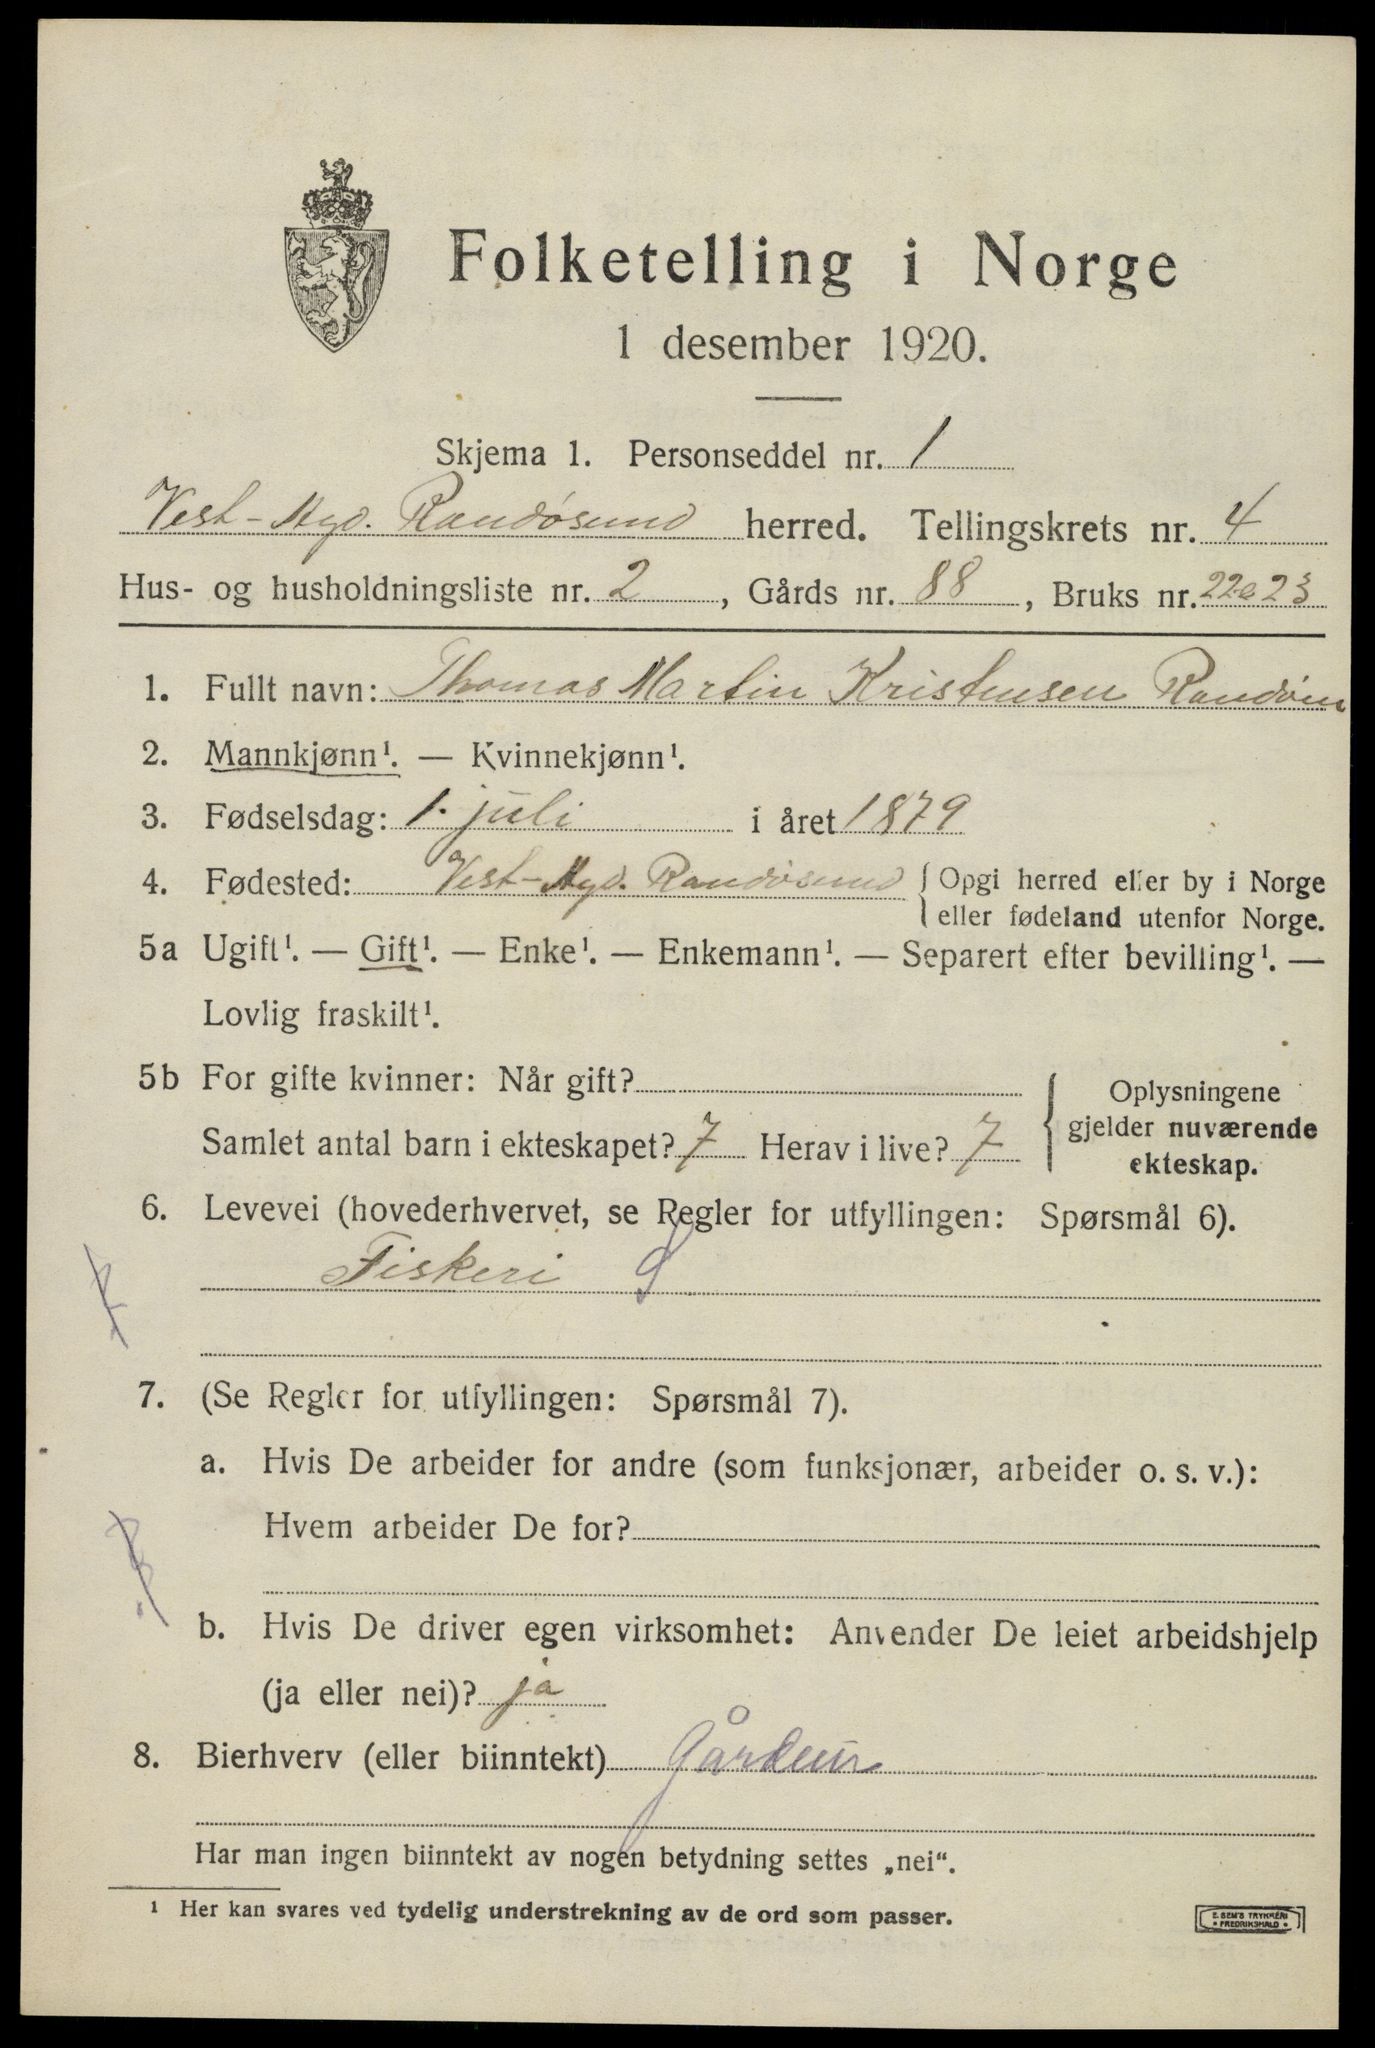 Folketelling i Norge
1 desember 1920.
Skjema 1. Personseddel nr. 1
Vest- Randøsund herred. Tellingskrets nr. 4
Hus- og husholdningsliste nr. 2, Gårds nr. 88, Bruks nr. 22 23
1. Fullt navn: Thomas Martin Kristensen
2. Mannkjønn¹. — Kvinnekjønn¹.
3. Fødselsdag: 1. juli i året 1879
4. Fødested: Vest- Randøsund { Opgi herred eller by i Norge
eller fødeland utenfor Norge.
5a Ugift¹. — Gift¹. — Enke¹. — Enkemann¹. — Separert efter bevilling¹. —
Lovlig fraskilt¹.
5b For gifte kvinner: Når gift?
Samlet antal barn i ekteskapet? 7 Herav i live? 7
Oplysningene
gjelder nuværende
ekteskap.
6. Levevei (hovederhvervet, se Regler for utfyllingen: Spørsmål 6).
Fiskeri S
7. (Se Regler for utfyllingen: Spørsmål 7).
a. Hvis De arbeider for andre (som funksjonær, arbeider o. s. v.):
Hvem arbeider De for?
b. Hvis De driver egen virksomhet: Anvender De leiet arbeidshjelp
(ja eller nei)? ja
8. Bierhverv (eller biinntekt)
Har man ingen biinntekt av nogen betydning settes „nei“.
¹ Her kan svares ved tydelig understrekning av de ord som passer.
E. SEM'S TRYKKERI
FREDRIKSHALD